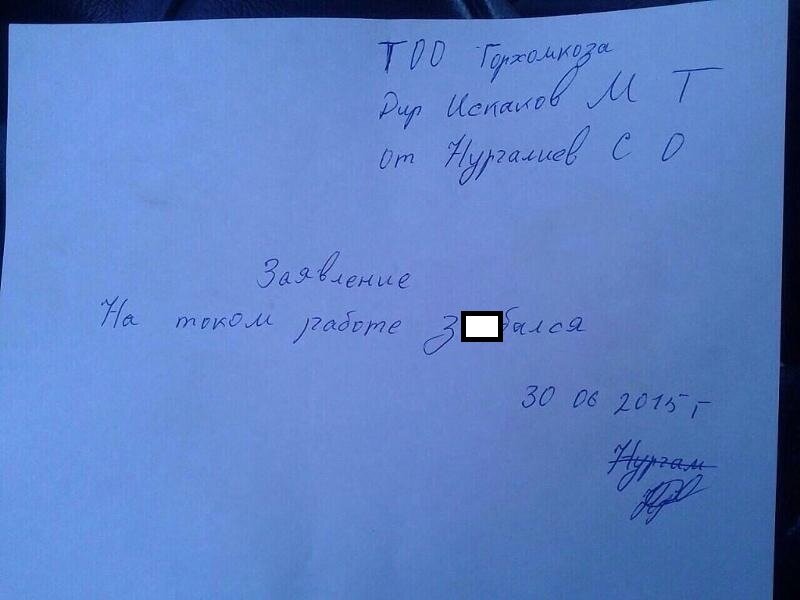 ТОО Горхомкоза
Дир Искаков М Т
от Нургалиев С О
Заявление
На током работе з бался
30 06 2015 г
Нургам